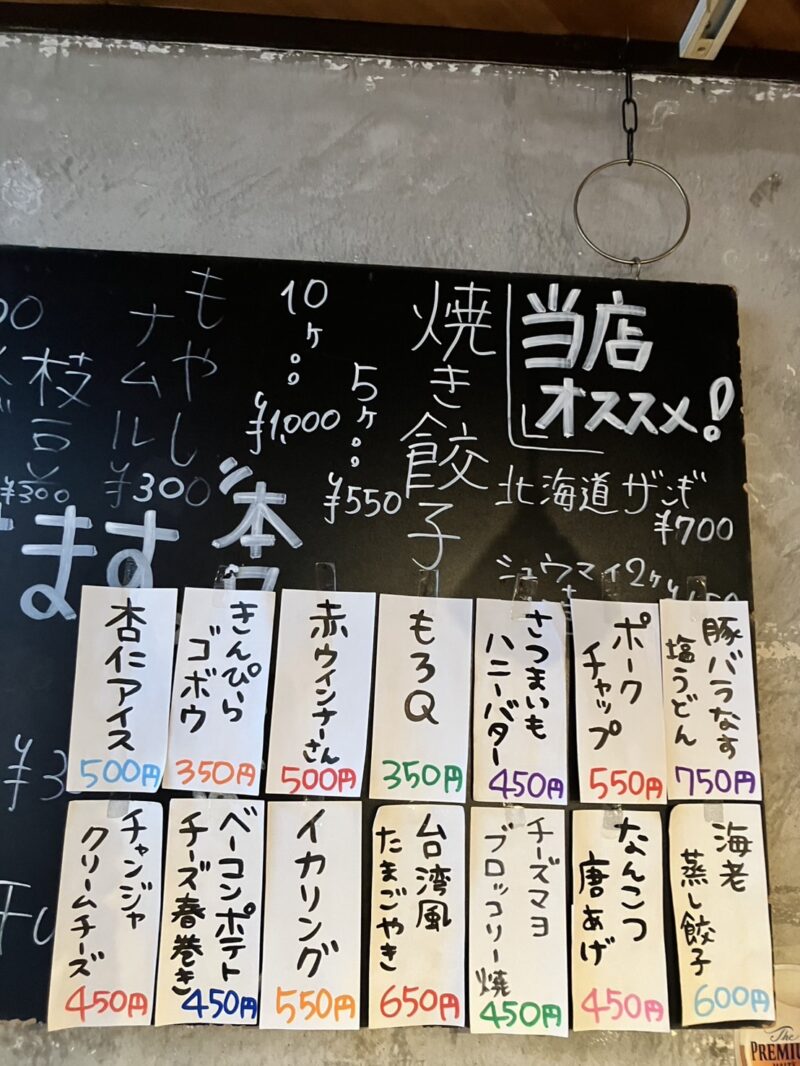 当店
オススメ!
北海道ザンギ
¥700
シュウマイ2ケ
焼き餃子
5ケ。。
¥550
10ケ。。
¥1,000
もやし
ナムル
¥300
枝豆
¥300
ます
本
豚バラなす
塩うどん
750円
ポーク
チャップ
550円
さつまいも
ハニーバター
450円
もろQ
350円
赤ウインナーさん
500円
きんぴら
ゴボウ
350円
杏仁アイス
500円
海老
蒸し餃子
600円
なんこつ
唐あげ
450円
チーズマヨ
ブロッコリー焼
450円
台湾風
たまごやき
650円
イカリング
550円
ベーコンポテト
チーズ春巻き
450円
チャンジャ
クリームチーズ
450円
The
PREMIU